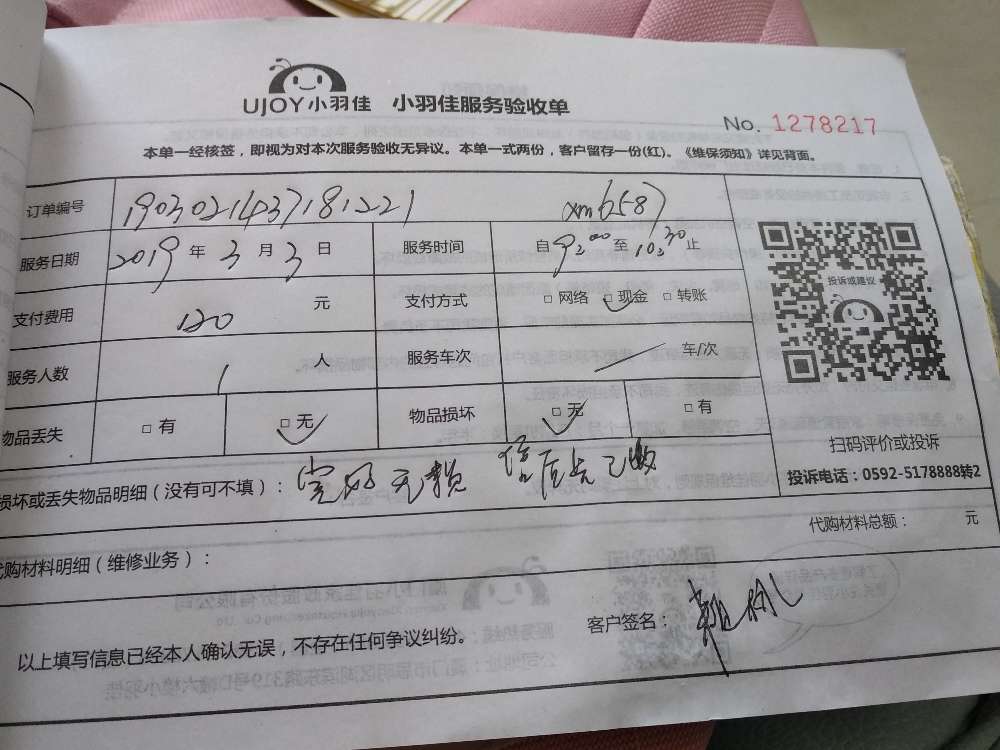 UJOY小羽佳 小羽佳服务验收单
No. 1278217
本单一经核签，即视为对本次服务验收无异议。本单一式两份，客户留存一份(红)。《维保须知》详见背面。
订单编号 1903021437181221 xm6587
服务日期 2019 年 3 月 3 日 服务时间 自 至 10:30 止
支付费用 120 元 支付方式 □ 网络 □ 现金 □ 转账
服务人数 1 人 服务车次 车/次
物品丢失 □ 有 □ 无 物品损坏 □ 无 □ 有
投诉或建议
扫码评价或投诉
投诉电话：0592-5178888转2
损坏或丢失物品明细（没有可不填）： 完好无损 已收
代购材料总额： 元
代购材料明细（维修业务）：
以上填写信息已经本人确认无误，不存在任何争议纠纷。 客户签名：